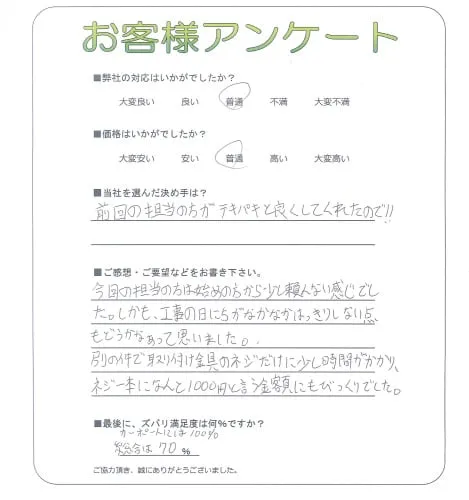 お客様アンケート
■弊社の対応はいかがでしたか？
大変良い 良い 普通 不満 大変不満
■価格はいかがでしたか？
大変安い 安い 普通 高い 大変高い
■当社を選んだ決め手は？
前回の担当の方がテキパキと良くしてくれたので!!
■ご感想・ご要望などをお書き下さい。
今回の担当の方は始めの方から少し頼んない感じでし
た。しかも、工事の日にちがなかなかはっきりしない点
もどうかなあって思いました。
別の件で取り付け金具のネジだけに少し時間がかかり、
ネジ一本になんと1000円と言う金額にもびっくりでした。
■最後に、ズバリ満足度は何%ですか？
カーポートには100%
総合は 70 %
ご協力頂き、誠にありがとうございました。